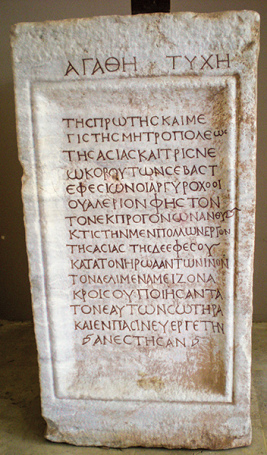 ΑΓΑΘΗ ΤΥΧΗ
ΤΗΣΠΡΩΤΗΣΚΑΙΜΕ
ΓΙΣΤΗΣΜΗΤΡΟΠΟΛΕΩΣ
ΤΗΣΑΣΙΑΣΚΑΙΤΡΙΣΝΕ
ΩΚΟΡΟΥΤΩΝΣΕΒΑΣΤ
ΕΦΕΣΙΩΝΟΙΑΡΓΥΡΟΧΟΟΙ
ΟΥΑΛΕΡΙΟΝΦΗΣΤΟΝ
ΤΟΝΕΚΠΡΟΓΟΝΩΝΑΝΘΥ
ΚΤΙΣΤΗΝΜΕΝΠΟΛΛΩΝΕΡΓΩΝ
ΤΗΣΑΣΙΑΣ ΤΗΣΔΕΕΦΕΣΟΥ
ΚΑΤΑΤΟΝΗΡΩΑΑΝΤΩΝΙΝΟΝ
ΤΟΝΔΕΛΙΜΕΝΑΜΕΙΖΟΝΑ
ΚΡΟΙΣΟΥΠΟΙΗΣΑΝΤΑ
ΤΟΝΕΑΥΤΩΝΣΩΤΗΡΑ
ΚΑΙΕΝΠΑΣΙΝΕΥΕΡΓΕΤΗΝ
ΑΝΕΣΤΗΣΑΝ